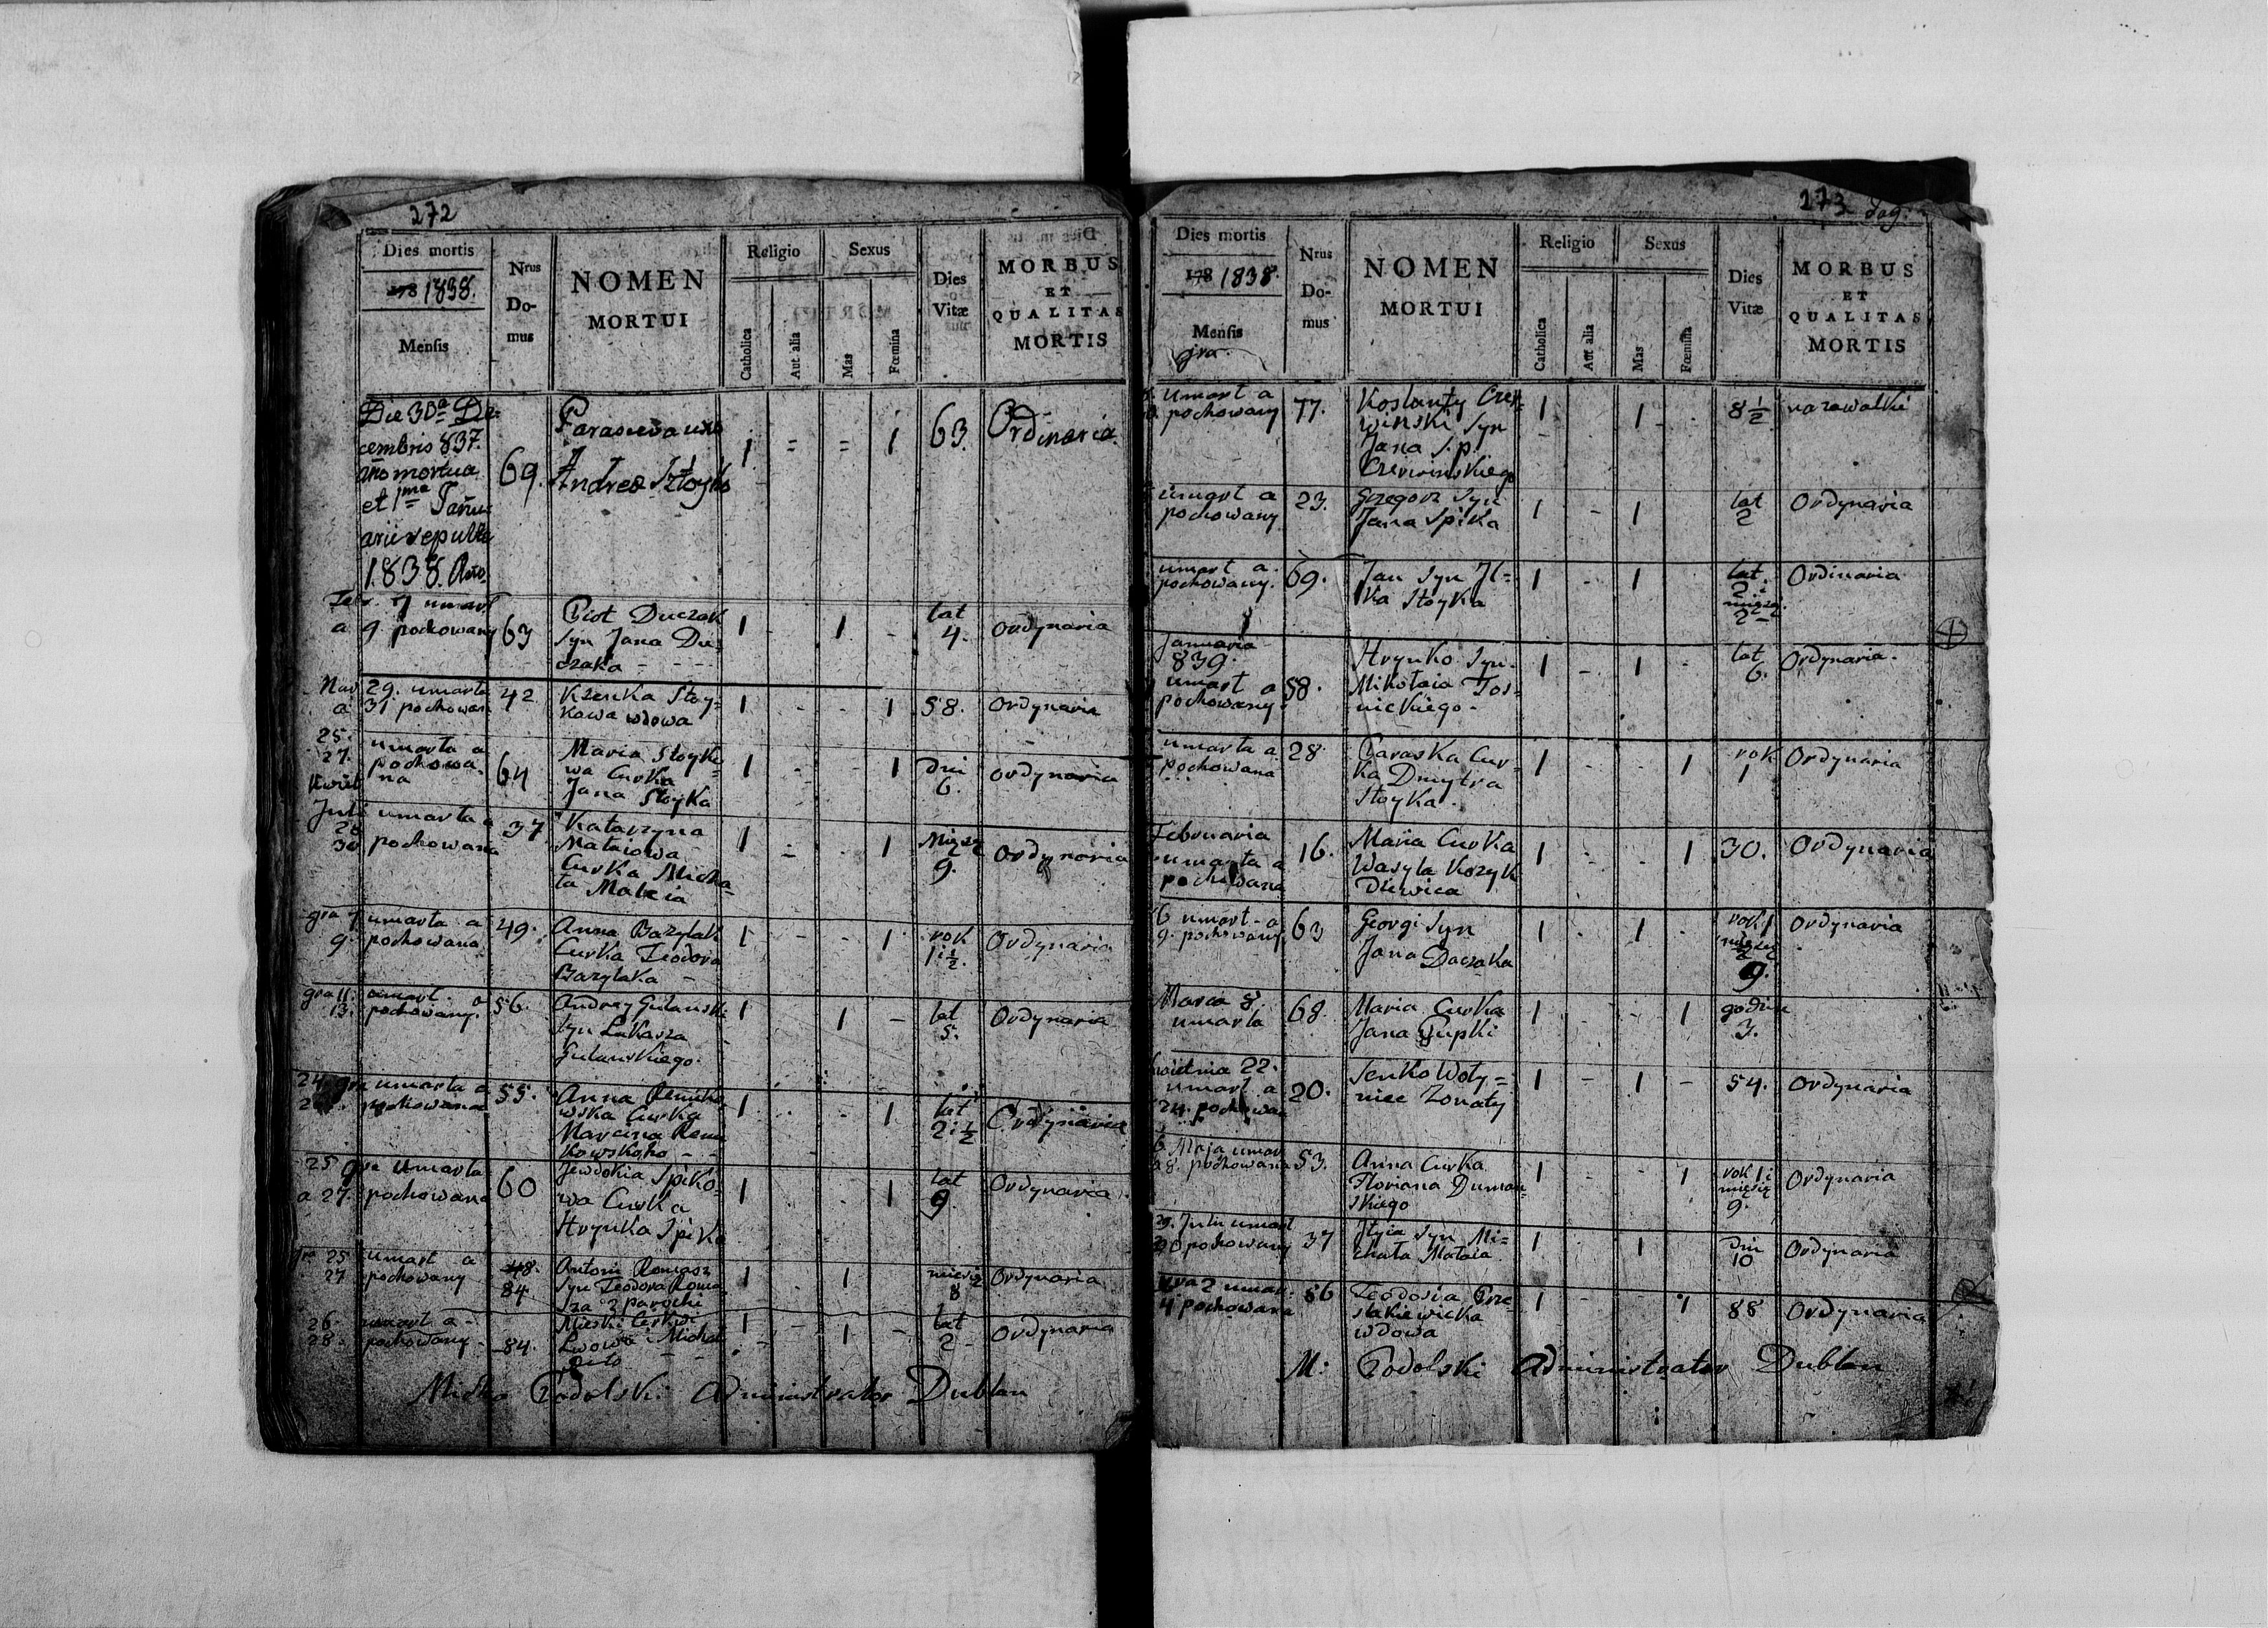 272
Dies mortis
178 1838.
Mensis
Nrus
Do-
mus
NOMEN
MORTUI
Religio
Catholica
Aut alia
Sexus
Mas
Fœmina
Dies
Vitæ
MORBUS
ET
QUALITAS
MORTIS
Die 30a De=
cembris 837.
mortua
et 1ma Janu
arii sepulta
1838.
69.
Andrea Stoyko
1 = = 1
63.
Ordinaria.
7 umarł
a 9 pochowany
63
Piot Duczak
syn Jana Du=
czaka - - -
1 - 1 -
lat
4.
Ordynaria
29. umarła
a 31 pochowana
42
Stoy=
kowa wdowa
1 - - 1
58.
Ordynaria
25.
27.
umarła a
pochowa-
na
64
Maria Stoyko=
wa Curka
Jana Stoyka
1 - - 1
Dni
6.
Ordynaria
Juli
28
30
umarła a
pochowana
37
Katarzyna
Mataiowa
Curka Micha-
ła Mataia
1 - - 1
9.
Ordynaria
7 umarła a
9. pochowana
49.
Anna Bazylak
Curka Teodora
Bazylaka -
1 - - 1
rok
1 i 1/2.
Ordynaria
11. umarł a
13. pochowany.
56.
Andrzy Gulanski
syn Lukasza
Gulanskiego.
1 - 1 -
lat
5.
Ordynaria
24 umarła a
pochowana
55.
Anna
wska Curka
Marcina
kowskoho - -
1 - - 1
lat
2 i 1/2
Ordynaria
25 umarła
a 27. pochowana
60
Jewdokia Spiko=
wa Curka
Hrynka Spika
1 - - 1
lat
9.
Ordynaria
25 umarł a
27 pochowany
48.
84.
Antoni Romasz
syn Teodora Roma
sza z parochi
1 - 1
8
Ordynaria
26. umarł a -
28. pochowany -
84.
Lwowa Michał
1 - 1 -
lat
2
Ordynaria
Podolski Administrator Dublan
273
Dies mortis
178 1838.
Mensis
Nrus
Do-
mus
NOMEN
MORTUI
Religio
Catholica
Aut alia
Sexus
Mas
Fœmina
Dies
Vitæ
MORBUS
ET
QUALITAS
MORTIS
umarł a
pochowany
77.
Kostanty Czer=
winski syn
Jana s.p.
Czerwinskiego
1 - 1 -
8 1/2
umarł a
pochowany
23.
Grzegorz syn
Jana Spika
1 - 1
lat
2
Ordynaria
umarł a.
pochowany.
69.
Jan syn Il=
ka Stoyka
1 - 1
lat.
2. i
2
Ordinaria
Januaria
839.
umarł a
pochowany
58.
Hrynko syn.
Mikołaia Jos=
nickiego -
1 - 1
lat
6.
Ordynaria.
umarła a
pochowana
28.
Paraska Cur=
ka Dmytra
Stoyka.
1 - - 1
rok
1
Ordynaria
Februaria
umarła a
pochowana
16.
Maria Curka
Wasyla Kozyk
Diewica
1 - - 1
30.
Ordynaria
6 umarł - a
9. pochowany
63
Georgi syn
Jana Daczaka
1 - 1 -
rok 1
9.
Ordynaria
Marca 8.
umarła
68.
Maria Curka
Jana Pupki
1 - - 1
godzin
3.
Kwietnia 22.
umarł a
24. pochowan
20.
Senko Woły=
niec Zonaty
1 - 1 -
54.
Ordynaria
6 Maja umar
a 8. pochowana
53.
Anna Curka
Floriana Duman=
skiego
1 - - 1
rok 1 i
9.
Ordynaria
29. Julii umarł
30 pochowany
37
Ilyia syn Mi=
chała Mataia
1 - 1
Dni
10
Ordynaria
2 umar.
4 pochowana
56
Teodosia Prze=
stakiewicka
wdowa
1 - - 1
88
Ordynaria
M: Podolski Administrator Dublan